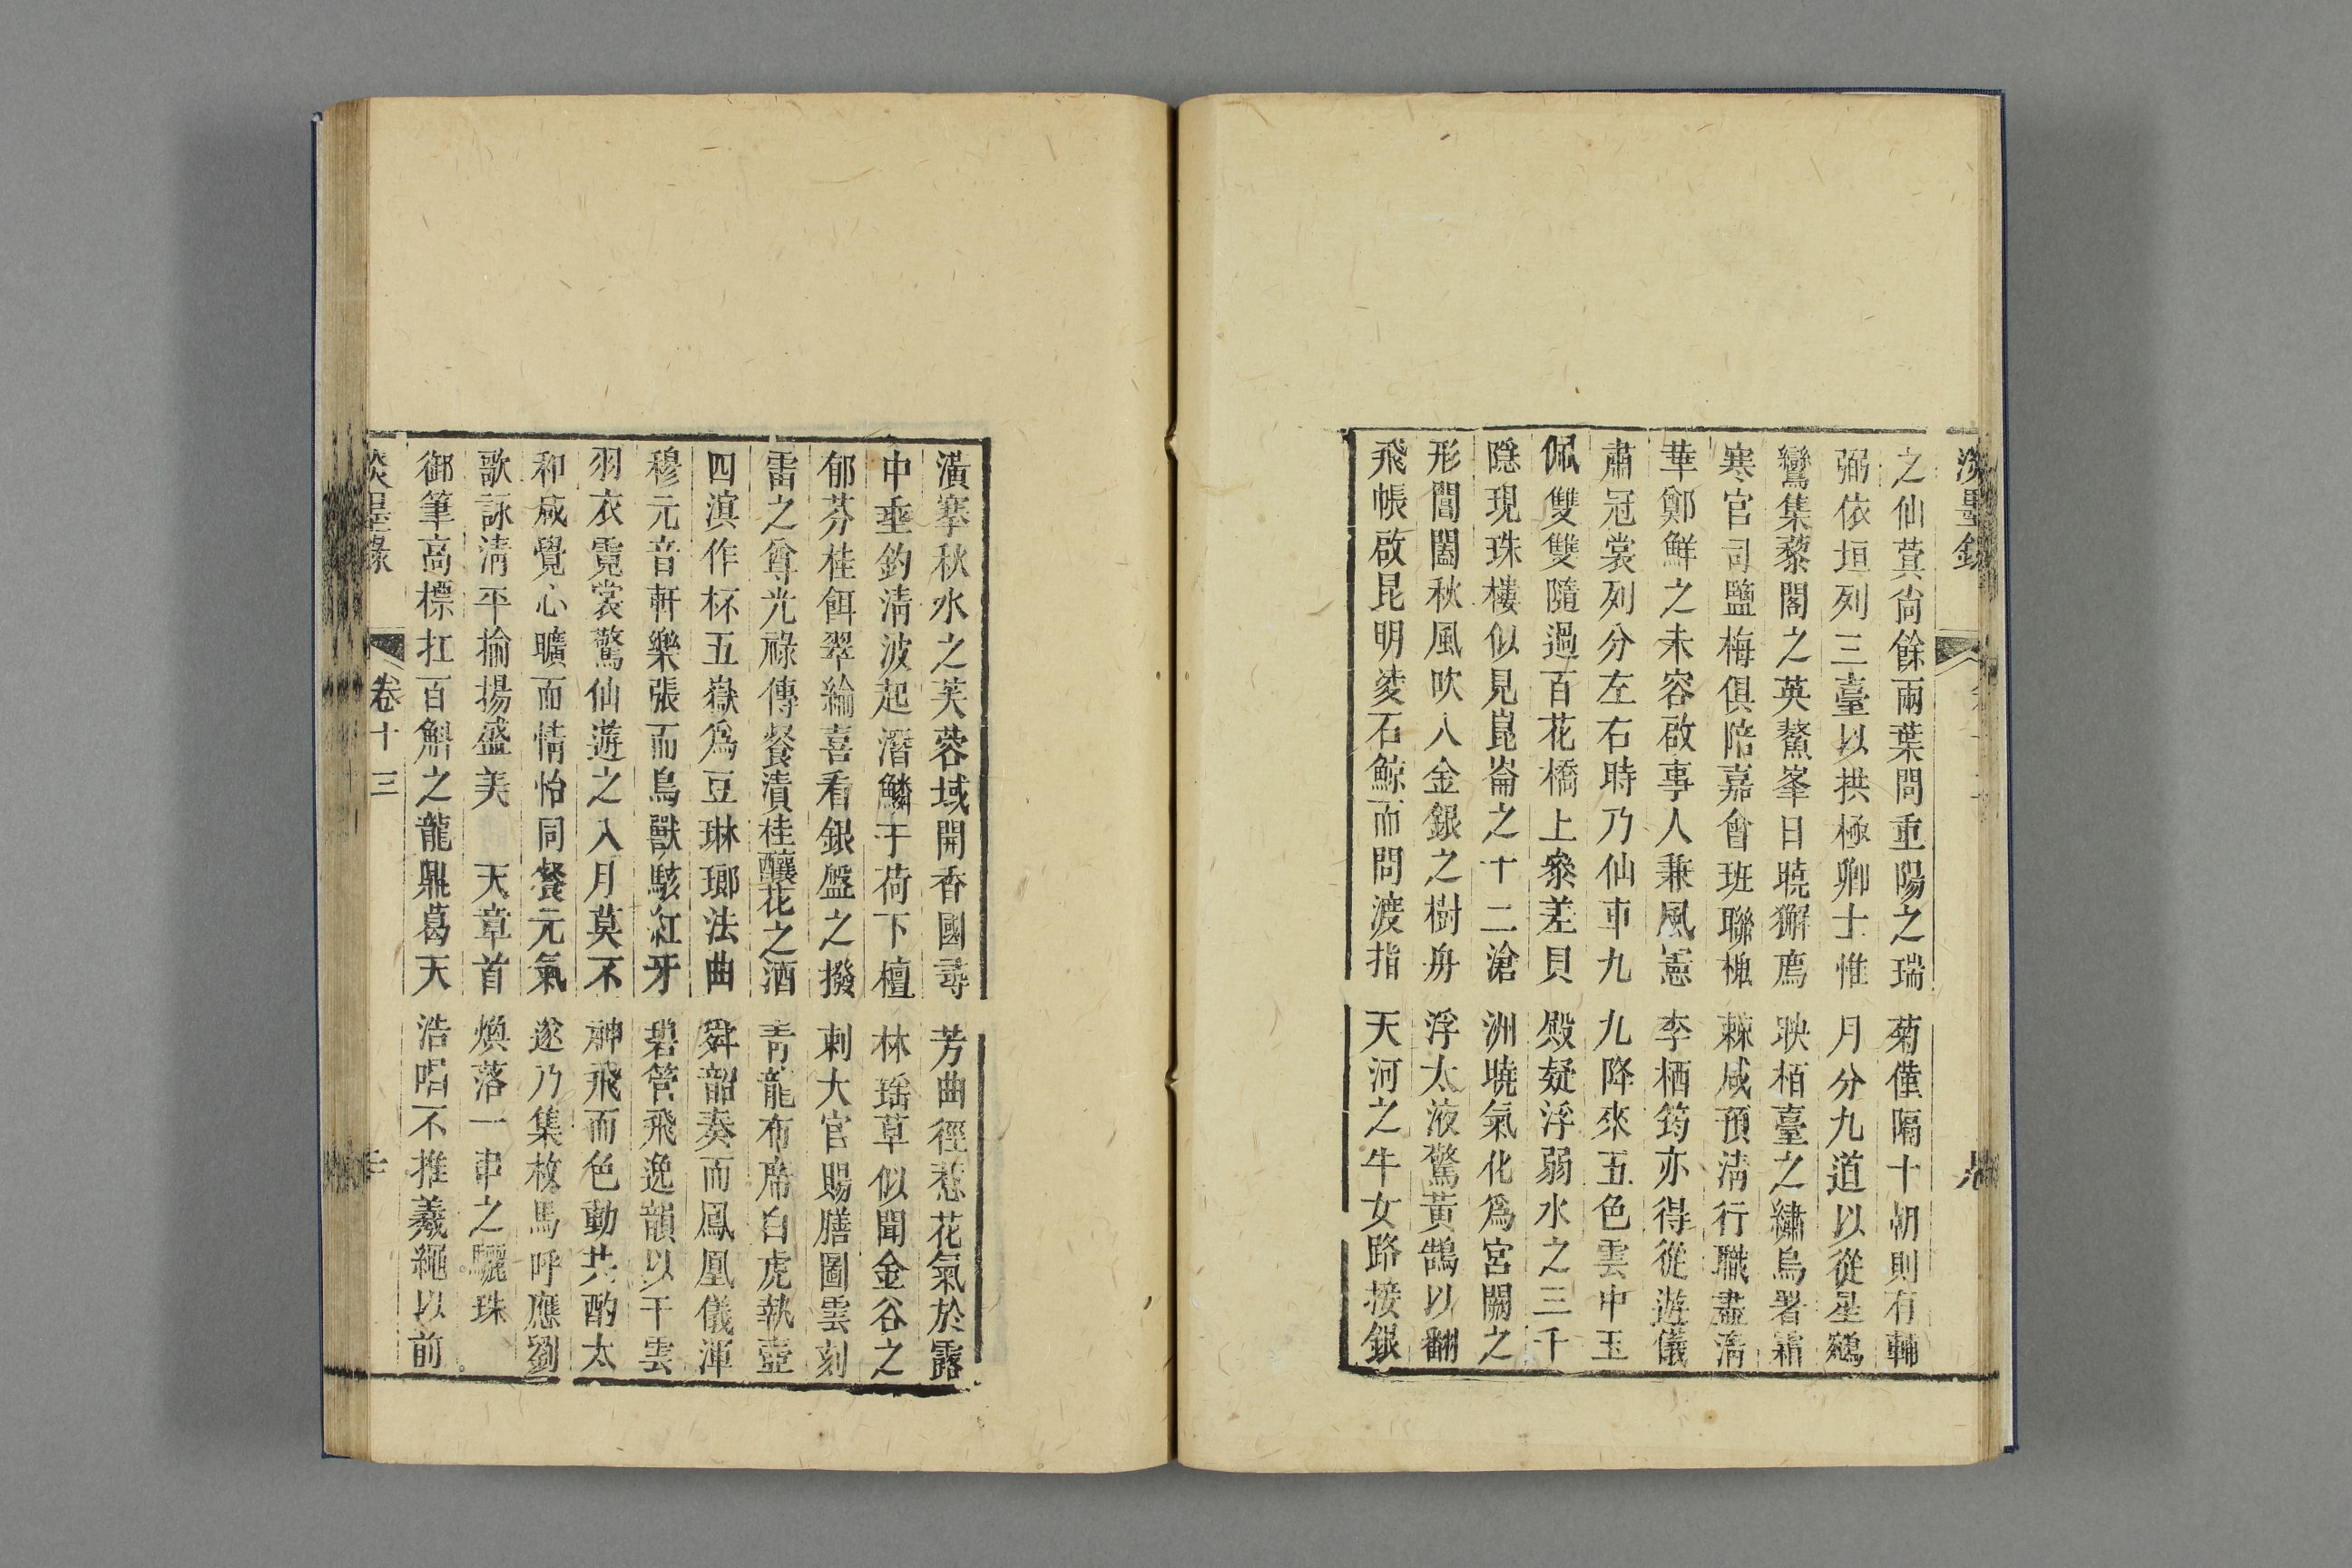 淡墨錄
之仙蓂尚餘兩葉問重陽之瑞菊僅隔十朝則有輔
弼依垣列三臺以拱極卿士惟月分九道以從星鵷
鸞集藜閣之英鰲峯日曉獬廌映栢臺之繡烏署霜
寒官司鹽梅俱陪嘉會班聯槐棘咸預淸行職盡淸
華鄭鮮之未容啟事人兼風憲李栖筠亦得從遊儀
肅冠裳列分左右時乃仙車九九降來五色雲中玉
佩雙雙隨過百花橋上叅差貝殿疑浮弱水之三千
隱現珠樓似見崑崙之十二滄洲曉氣化爲宮闕之
形閶闔秋風吹入金銀之樹舟浮太液驚黃鵠以翻
飛帳啟昆明淩石鯨而問渡指天河之牛女路接銀
潢搴秋水之芙蓉域開香國尋芳曲徑惹花氣於露
中垂釣淸波起潛鱗于荷下檀林瑤草似聞金谷之
郁芬桂餌翠綸喜看銀盤之撥剌大官賜膳圖雲刻
雷之尊光祿傳餐漬桂釀花之酒靑龍布席白虎執壺
四溟作杯五嶽爲豆琳瑯法曲舜韶奏而鳳凰儀渾
穆元音軒樂張而鳥獸駭紅牙碧管飛逸韻以干雲
羽衣霓裳驚仙遊之入月莫不神飛而色動共酌太
和咸覺心曠而情怡同餐元氣遂乃集枚馬呼應劉
歌詠淸平揄揚盛美 天章首煥落一串之驪珠
御筆高標扛百斛之龍鼎葛天浩唱不推羲繩以前
淡墨錄 卷十三